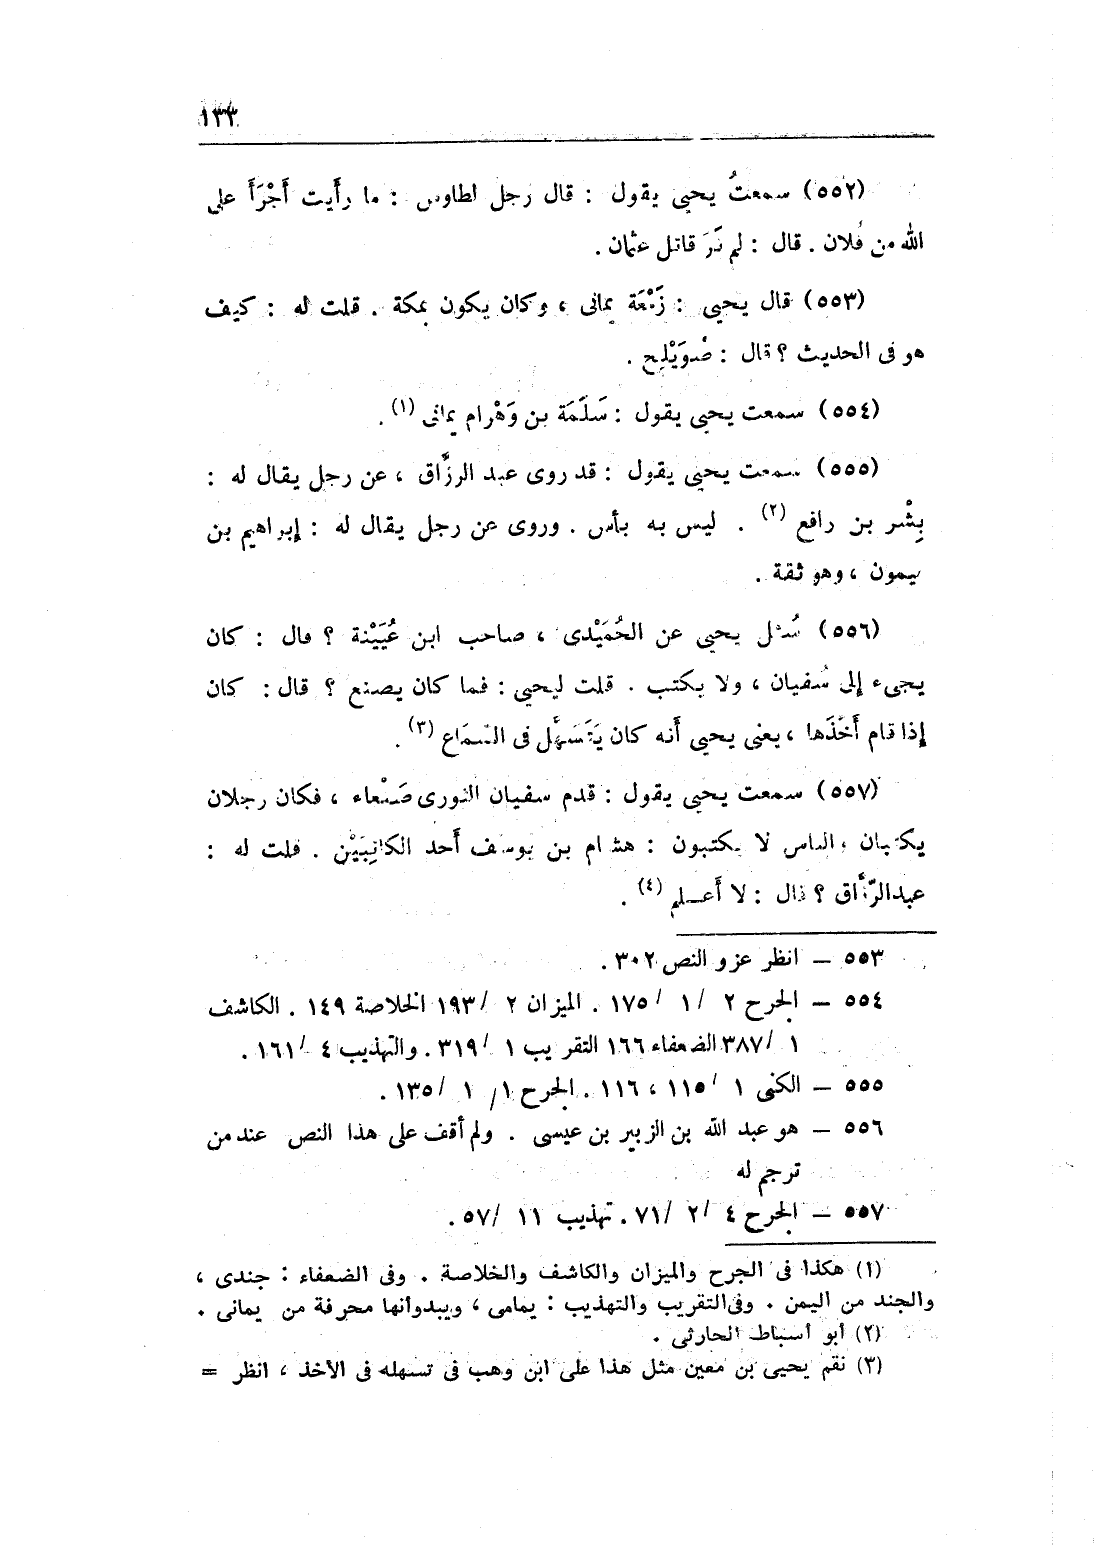 ١٣٣
(٥٥٢) سمعتُ يحيى يقول : قال رجل لطاوس : ما رأيت أَجْرَأَ على
الله من فُلان . قال : لم تَرَ قاتل عثمان .
(٥٥٣) قال يحيى : زَمْعَة يمانى ، وكان يكون بمكة . قلت له : كيف
هو فى الحديث ؟ قال : صُوَيْلِح .
(٥٥٤) سمعت يحيى يقول : سَلَمَة بن وَهْرام يمانى (١) .
(٥٥٥) سمعت يحيى يقول : قد روى عبد الرزَّاق ، عن رجل يقال له :
بِشْر بن رافع (٢) . ليس به بأس . وروى عن رجل يقال له : إبراهيم بن
ميمون ، وهو ثقة .
(٥٥٦) سُئل يحيى عن الحُمَيْدى ، صاحب ابن عُيَيْنة ؟ قال : كان
يجىء إلى سُفيان ، ولا يكتب . قلت ليحيى : فما كان يصنع ؟ قال : كان
إذا قام أَخَذَها ، يعنى يحيى أَنه كان يَتَسَهَّل فى السَّمَاع (٣) .
(٥٥٧) سمعت يحيى يقول : قدم سفيان الثورى صَنْعاء ، فكان رجلان
يكتبان والناس لا يكتبون : هشام بن يوسف أَحد الكاتِبَيْن . قلت له :
عبدالرَّزَّاق ؟ قال : لا أَعـلم (٤) .
٥٥٣ – انظر عزو النص ٣٠٢ .
٥٥٤ – الجرح ٢ / ١ / ١٧٥ . الميزان ٢ / ١٩٣ الخلاصة ١٤٩ . الكاشف
١ / ٣٨٧ الضعفاء ١٦٦ التقريب ١ / ٣١٩ . والتهذيب ٤ / ١٦١ .
٥٥٥ – الكنى ١ / ١١٥ ، ١١٦ . الجرح ١ / ١ / ١٣٥ .
٥٥٦ – هو عبد الله بن الزبير بن عيسى . ولم أقف على هذا النص عند من
ترجم له
٥٥٧ – الجرح ٤ / ٢ / ٧١ . تهذيب ١١ / ٥٧ .
(١) هكذا فى الجرح والميزان والكاشف والخلاصة . وفى الضعفاء : جندى ،
والجند من اليمن . وفى التقريب والتهذيب : يمامى ، ويبدوانها محرفة من يمانى .
(٢) أبو أسباط الحارثى .
(٣) نقم يحيى بن معين مثل هذا على ابن وهب فى تسهله فى الأخذ ، انظر =